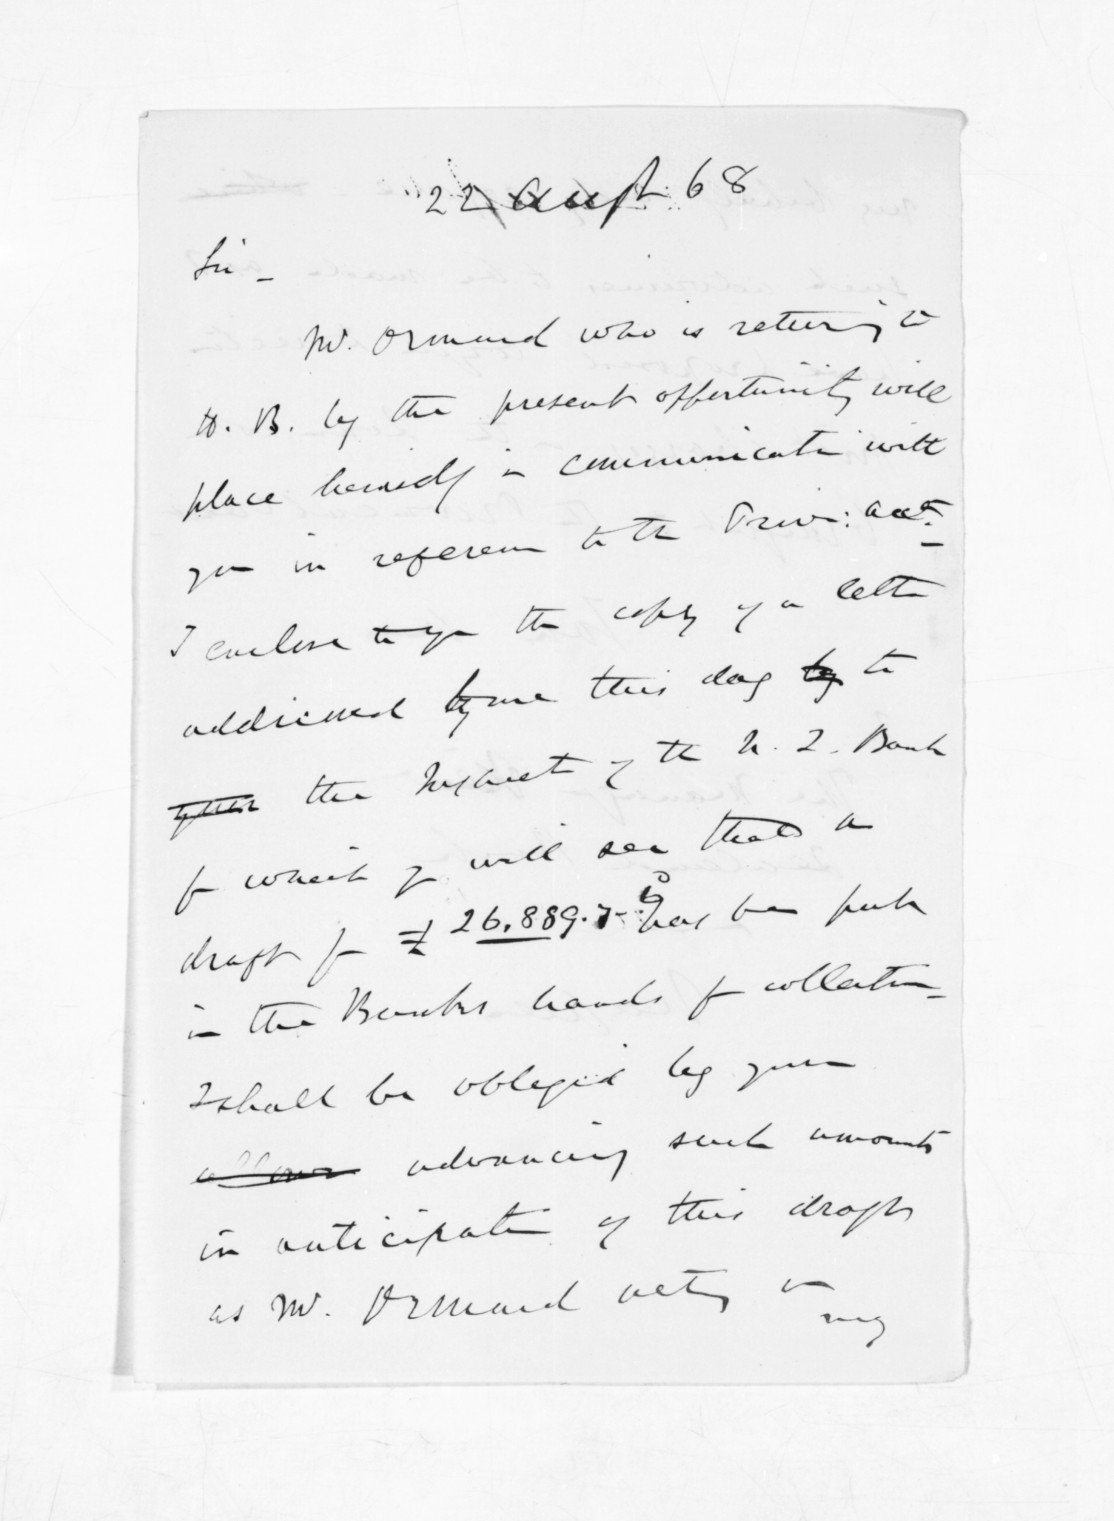 22 Augt 68
Sir -
Mr. Ormond who is returning to
H. B. by the present opportunity will
place himself in communication with
you in reference to the Prov: acct.
I enclose to you the copy of a letter
addressed by me this day by to
the Inspector of the N. Z. Bank
fr which you will see that a
draft for £26,889.7- has been put
in the Banks hands for collection -
I shall be obliged by your
allowi advancing such amounts
in anticipation of this draft
as Mr. Ormond acting on
my